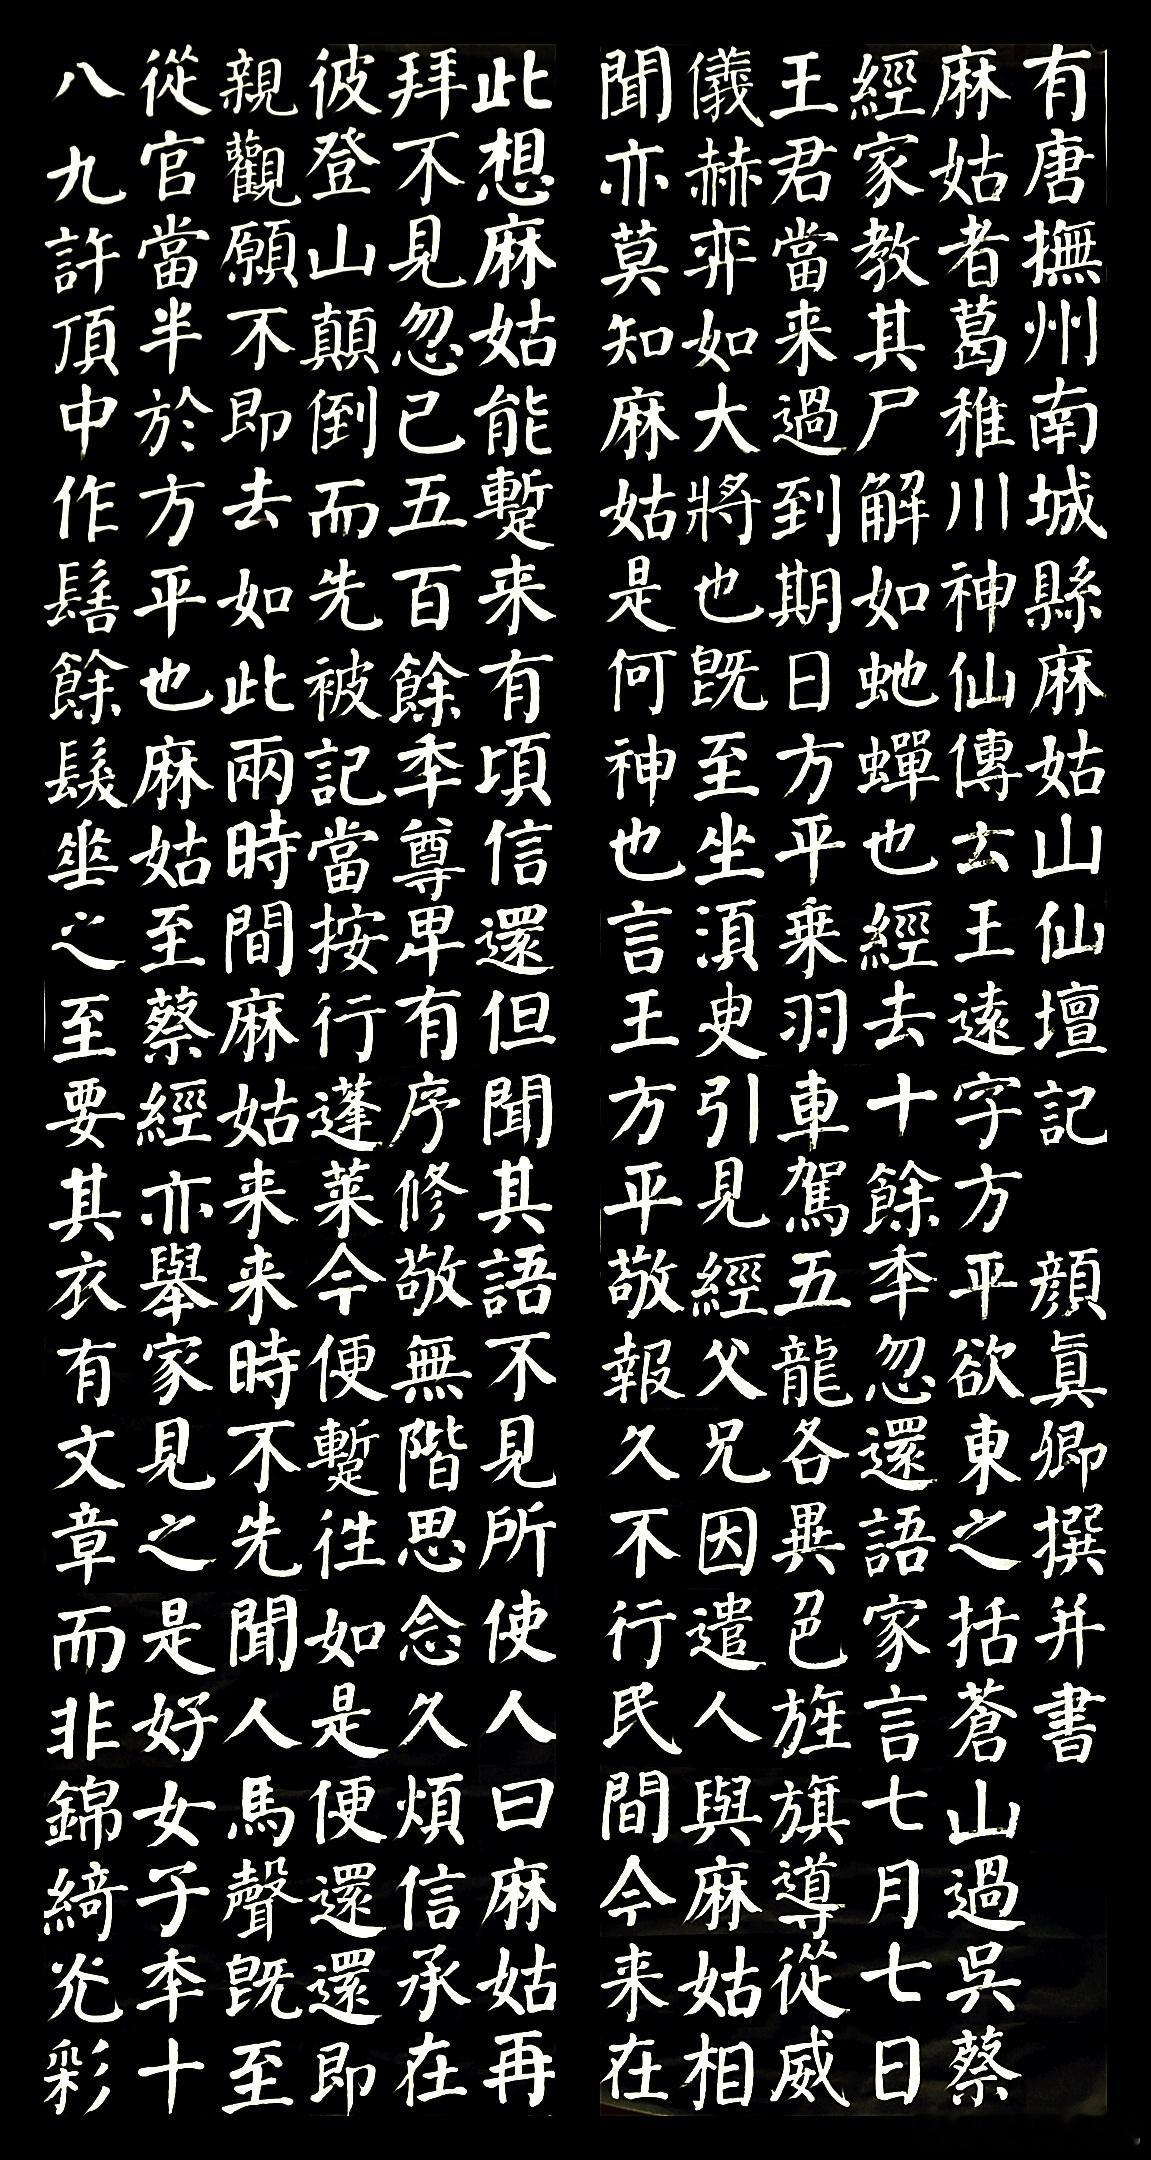 有唐撫州南城縣麻姑山仙壇記 顏真卿撰并書
麻姑者葛稚川神仙傳云王遠字方平欲東之括蒼山過吳蔡
經家教其尸解如虵蟬也經去十餘秊忽還語家言七月七日
王君當来過到期日方平乗羽車駕五龍各異色旌旗導從威
儀赫弈如大將也既至坐湏叓引見經父兄因遣人與麻姑相
聞亦莫知麻姑是何神也言王方平敬報久不行民間今来在
此想麻姑能蹔来有頃信還但聞其語不見所使人曰麻姑再
拜不見忽已五百餘秊尊卑有序修敬無階思念久煩信承在
彼登山顛倒而先被記當按行蓬莱今便蹔往如是便還還即
親觀願不即去如此兩時間麻姑来来時不先聞人馬聲既至
從官當半於方平也麻姑至蔡經亦舉家見之是好女子秊十
八九許頂中作髻餘髮垂之至要其衣有文章而非錦綺光彩